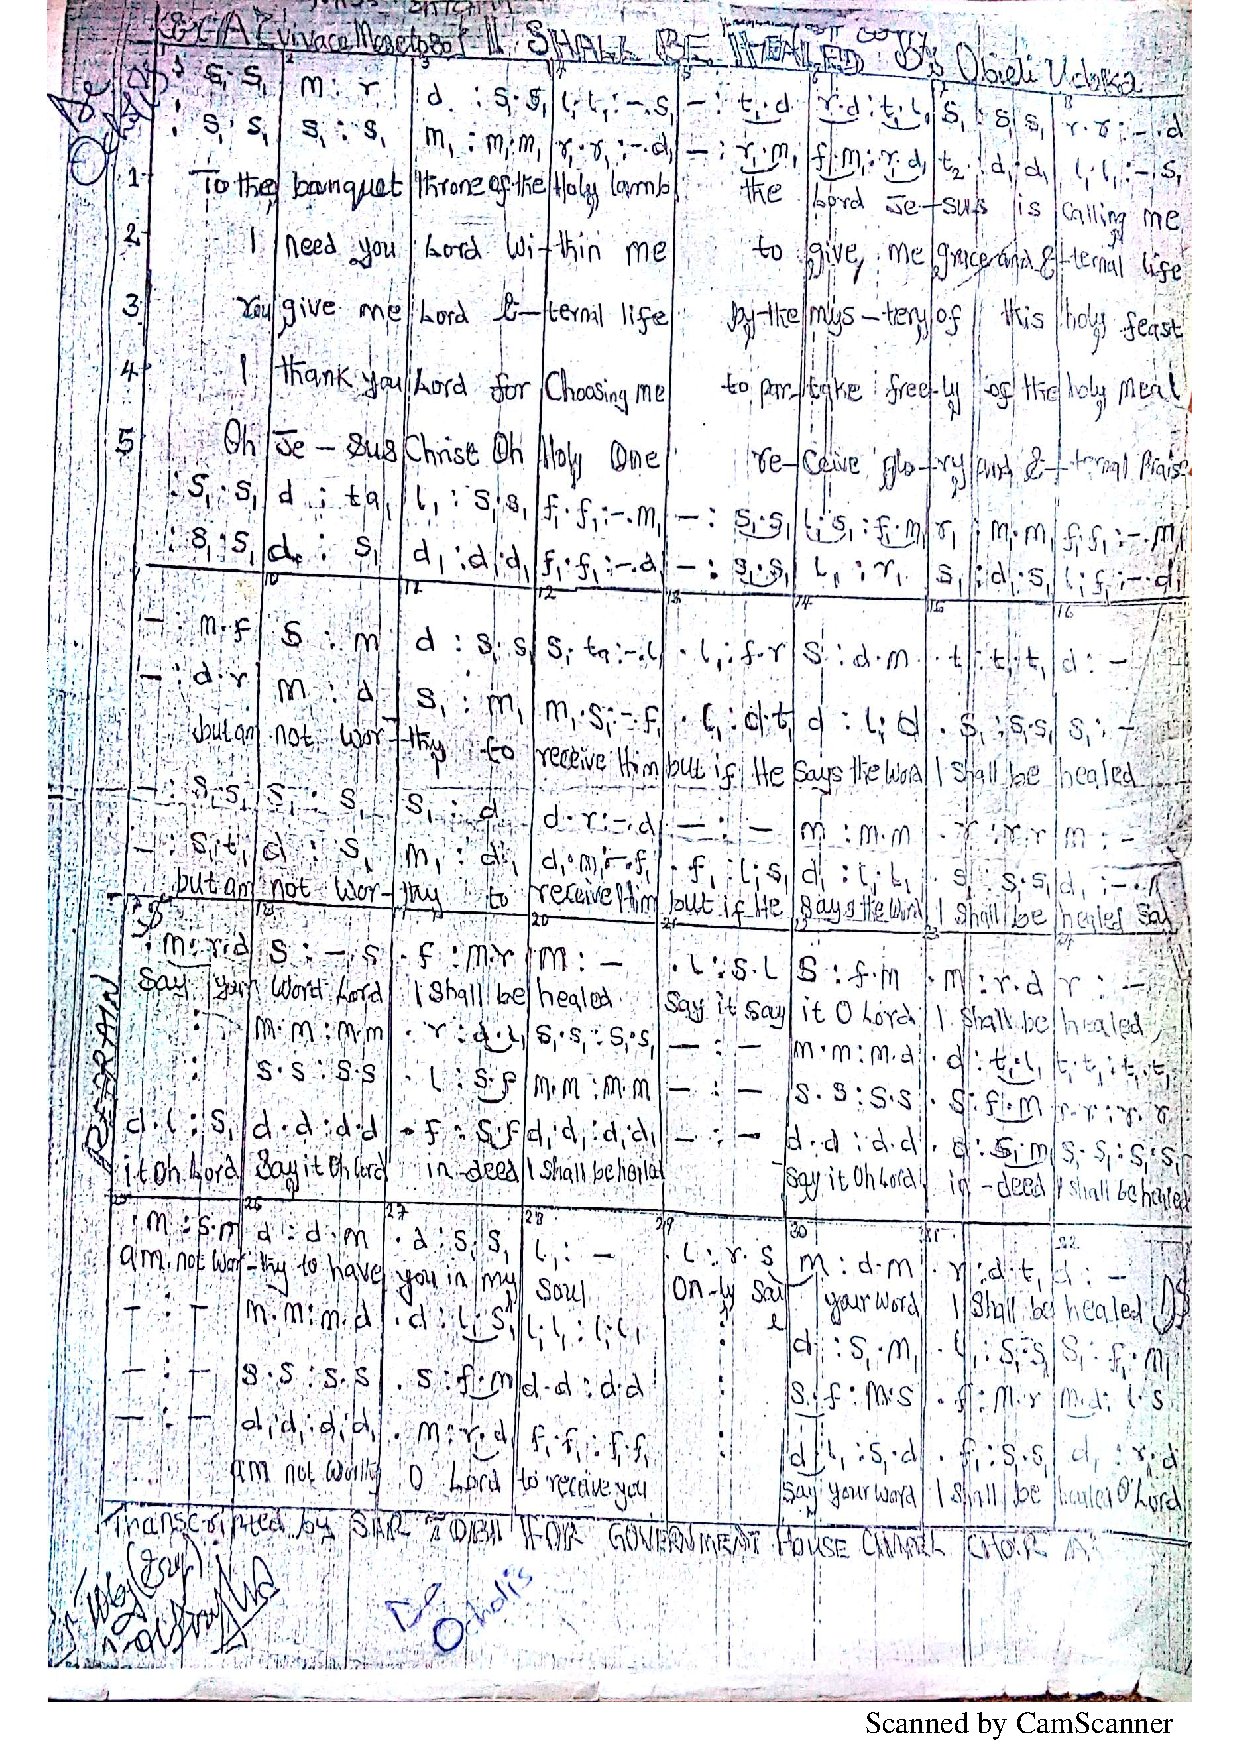 I SHALL BE HEALED By Obieli Udoka
: s₁ . s₁ | m : r | d : s₁ . s₁ | l₁ . l₁ : - . s₁ | - : t₁ . d | r . d : t₁ . l₁ | s₁ : s₁ . s₁ | r . r : - . d
: s₁ . s₁ | s₁ : s₁ | m₁ : m₁ . m₁ | r₁ . r₁ : - . d₁ | - : r₁ . m₁ | f₁ . m₁ : r₁ . d₁ | t₂ : d₁ . d₁ | l₁ . l₁ : - . s₁
1 To the banquet throne of the Holy lamb the Lord Je-sus is calling me
2 I need you Lord Wi-thin me to give me grace and E-ternal life
3 You give me Lord E-ternal life by the mys-tery of this holy feast
4 I thank you Lord for Choosing me to par-take free-ly of the holy Meal
5 Oh Je-sus Christ Oh Holy One re-ceive glo-ry and E-ternal Praise
: s₁ . s₁ | d : ta₁ | l₁ : s₁ . s₁ | f₁ . f₁ : - . m₁ | - : s₁ . s₁ | l₁ . s₁ : f₁ . m₁ | r₁ : m₁ . m₁ | f₁ . f₁ : - . m₁
: s₁ . s₁ | d : s₁ | d₁ : d₁ . d₁ | f₁ . f₁ : - . d₁ | - : s₁ . s₁ | l₁ : r₁ | s₁ : d₁ . s₁ | l₁ . f₁ : - . d₁
10 11 12 13 14 15 16
- : m . f | s : m | d : s₁ . s₁ | s₁ . ta₁ : - . l₁ | . l₁ : f . r | s : d . m | . t₁ : t₁ . t₁ | d : -
- : d . r | m : d | s₁ : m₁ | m₁ . s₁ : - . f₁ | . l₁ : d . t₁ | d : l₁ . d | . s₁ : s₁ . s₁ | s₁ : -
but am not wor-thy to receive Him but if He says the word I shall be healed
- : s₁ . s₁ | s₁ : s₁ | s₁ : d | d . r : - . d | - : - | m : m . m | . r : r . r | m : -
- : s₁ . t₁ | d : s₁ | m₁ : d₁ | d₁ . m₁ : - . f₁ | . f₁ : l₁ . s₁ | d₁ : l₁ . l₁ | . s₁ : s₁ . s₁ | d₁ : -
but am not wor-thy to receive Him but if He says the word I shall be healed Say
REFRAIN
. m : r . d | s : - . s | . f : m . r | m : - | . l : s . l | s : f . m | . m : r . d | r : -
Say your word Lord I shall be healed. Say it Say it O Lord I shall be healed
: | m . m : m . m | . r : d . l₁ | s₁ . s₁ : s₁ . s₁ | - : - | m . m : m . d | . d : t₁ . l₁ | t₁ . t₁ : t₁ . t₁
: | s . s : s . s | . l : s . f | m . m : m . m | - : - | s . s : s . s | . s : f . m | r . r : r . r
d . l₁ : s₁ | d . d : d . d | . f : s . f | d₁ . d₁ : d₁ . d₁ | - : - | d . d : d . d | . d : s₁ . m₁ | s₁ . s₁ : s₁ . s₁
it Oh Lord Say it Oh Lord in-deed I shall be healed Say it Oh Lord in-deed I shall be healed
25 26 27 28 29 30 31 32
. m : s . m | d : d . m | . d : s₁ . s₁ | l₁ : - | . l₁ : r . s | m : d . m | . r : d . t₁ | d : -
am not wor-thy to have you in my Soul On-ly Say your word I shall be healed DS
- : - | m . m : m . d | . d : l₁ . s₁ | l₁ . l₁ : l₁ . l₁ | : | d : s₁ . m₁ | . l₁ : s₁ . s₁ | s₁ . f₁ . m₁
- : - | s . s : s . s | . s : f . m | d . d : d . d | : | s . f : m . s | . f : m . r | m . d : l . s
- : - | d₁ . d₁ : d₁ . d₁ | . m : r . d | f₁ . f₁ : f₁ . f₁ | : | d . l₁ : s₁ . d | . f₁ : s₁ . s₁ | d₁ : r . d
am not worthy O Lord to receive you Say your word I shall be healed O' Lord
Transcripted by FOR GOVERNMENT HOUSE CHAPEL CHOIR
De
Ocholis
Scanned by CamScanner